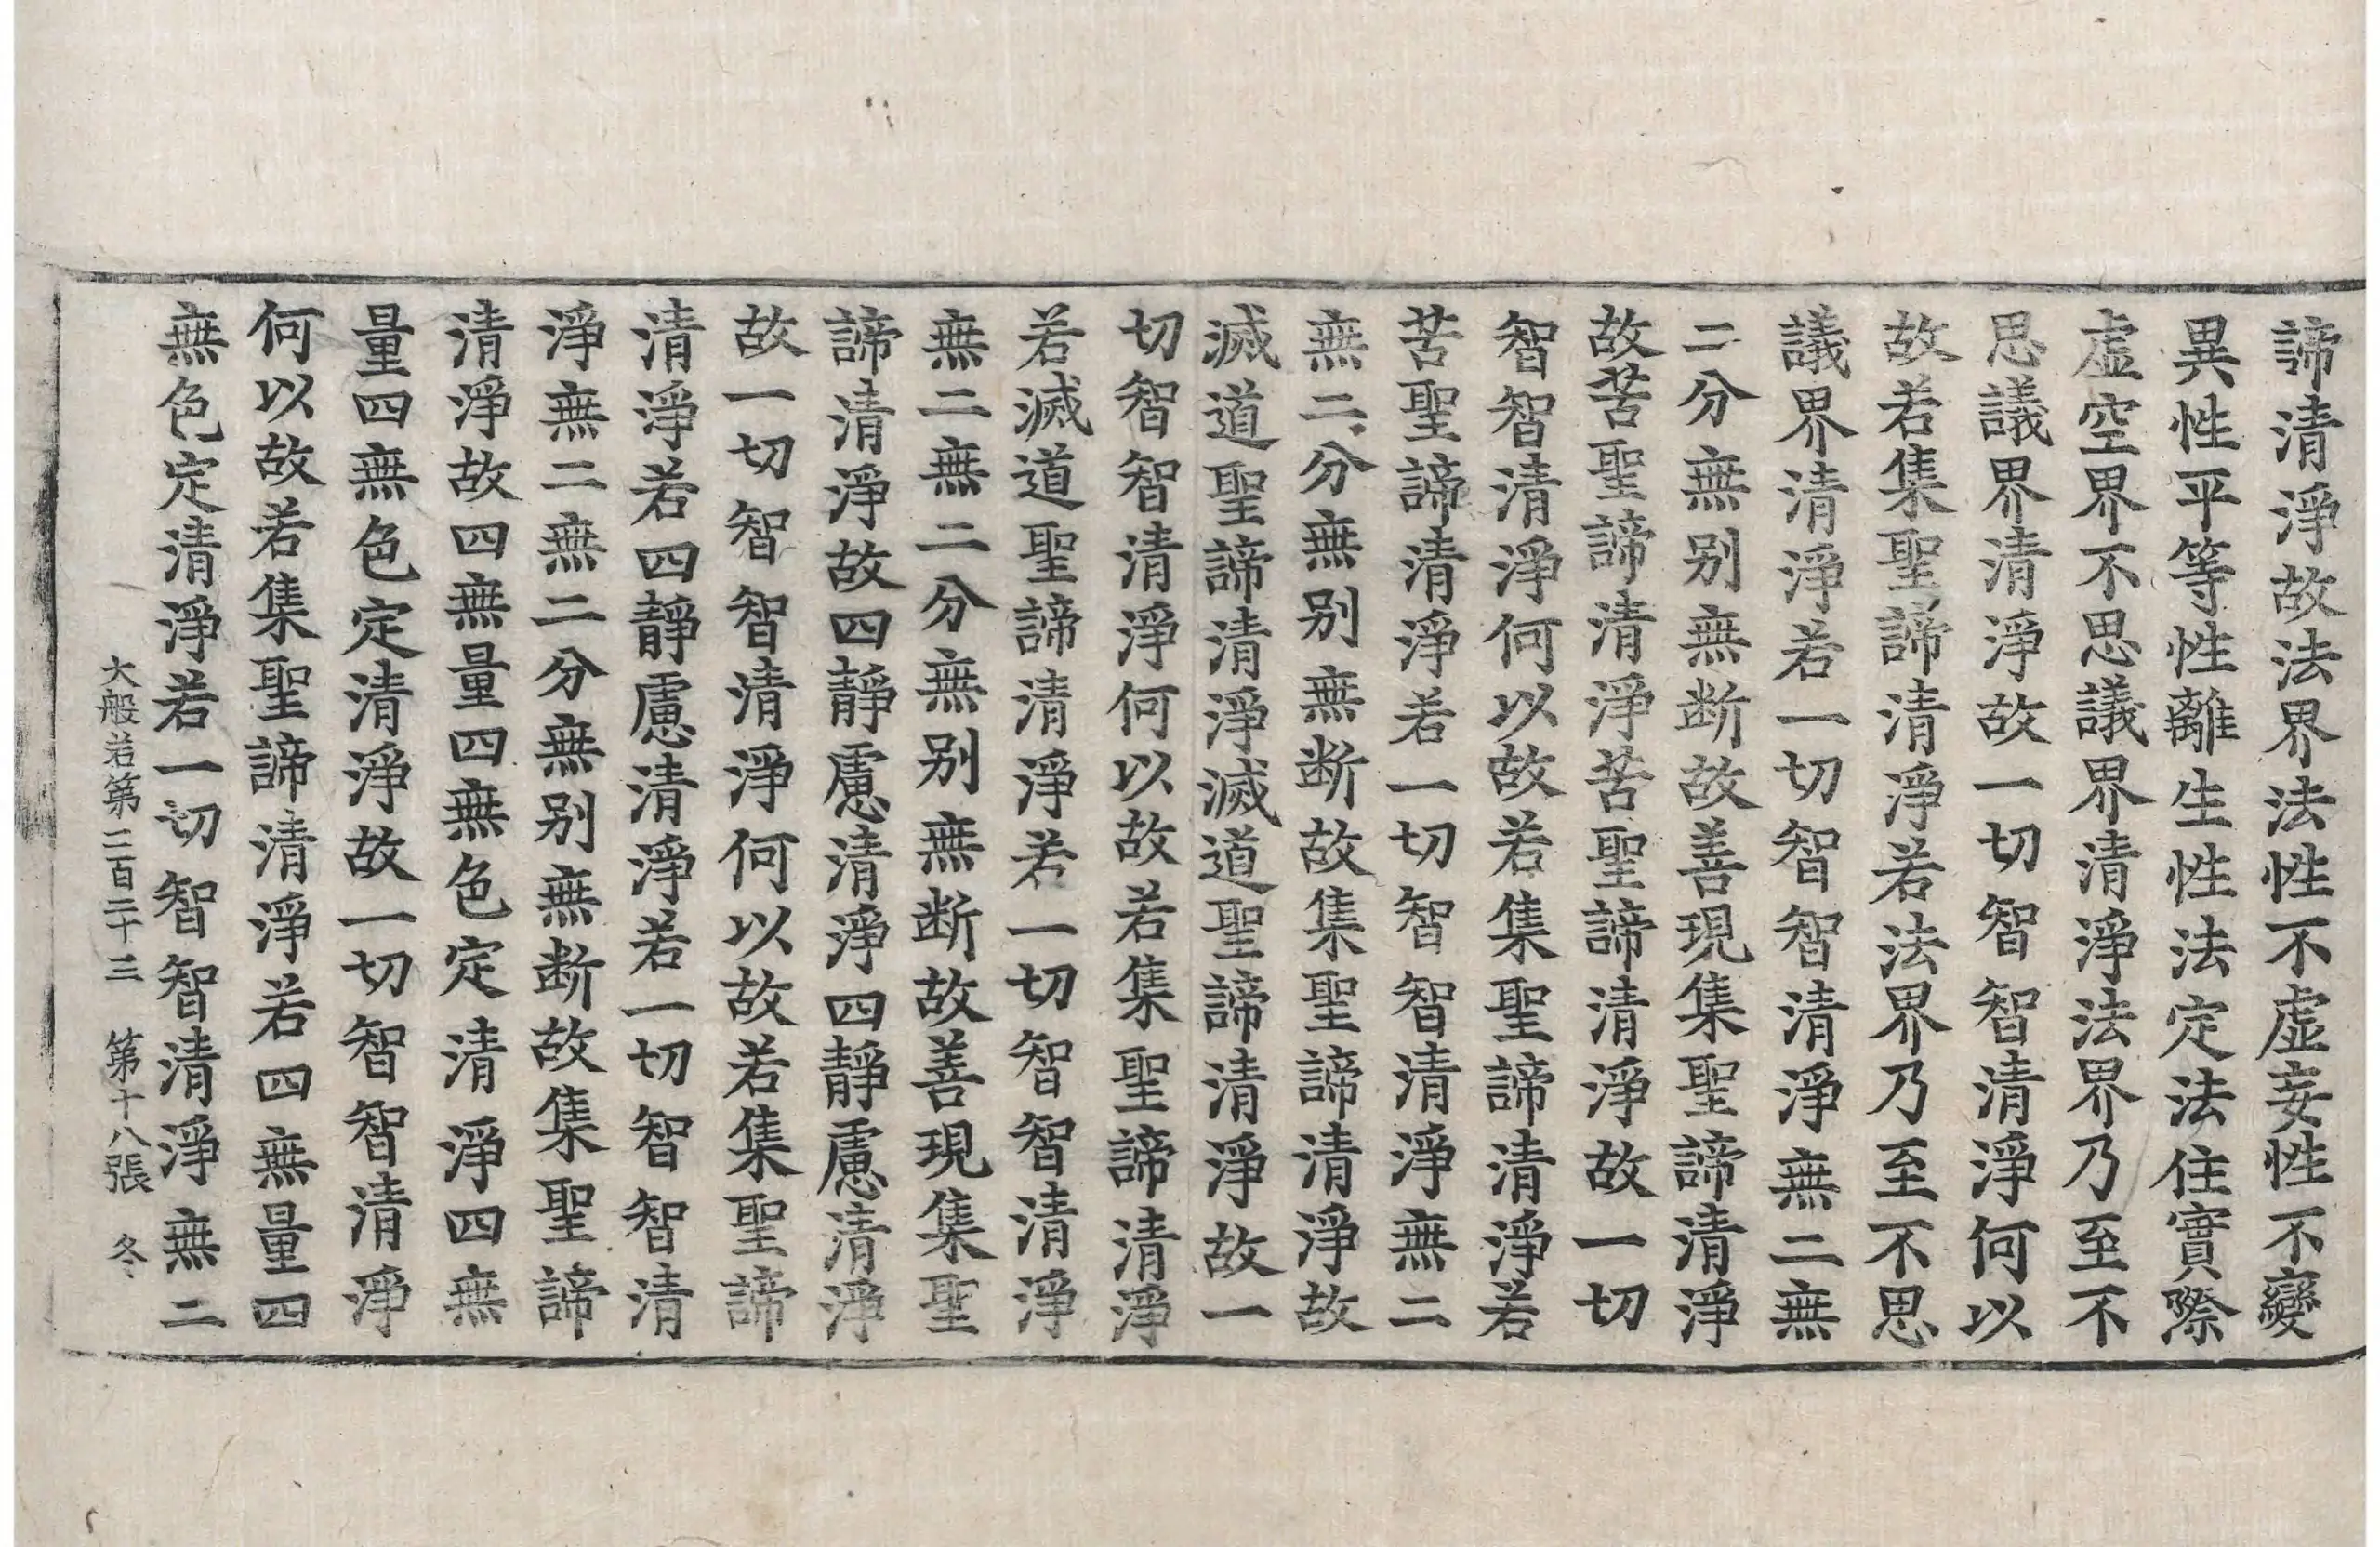 諦清淨故法界法性不虛妄性不變
異性平等性離生性法定法住實際
虛空界不思議界清淨法界乃至不
思議界清淨故一切智智清淨何以
故若集聖諦清淨若法界乃至不思
議界清淨若一切智智清淨無二無
二分無别無断故善現集聖諦清淨
故苦聖諦清淨苦聖諦清淨故一切
智智清淨何以故若集聖諦清淨若
苦聖諦清淨若一切智智清淨無二
無二分無别無断故集聖諦清淨故
滅道聖諦清淨滅道聖諦清淨故一
切智智清淨何以故若集聖諦清淨
若滅道聖諦清淨若一切智智清淨
無二無二分無别無断故善現集聖
諦清淨故四靜慮清淨四靜慮清淨
故一切智智清淨何以故若集聖諦
清淨若四靜慮清淨若一切智智清
淨無二無二分無别無断故集聖諦
清淨故四無量四無色定清淨四無
量四無色定清淨故一切智智清淨
何以故若集聖諦清淨若四無量四
無色定清淨若一切智智清淨無二
大般若第二百二十三 第十八張 冬